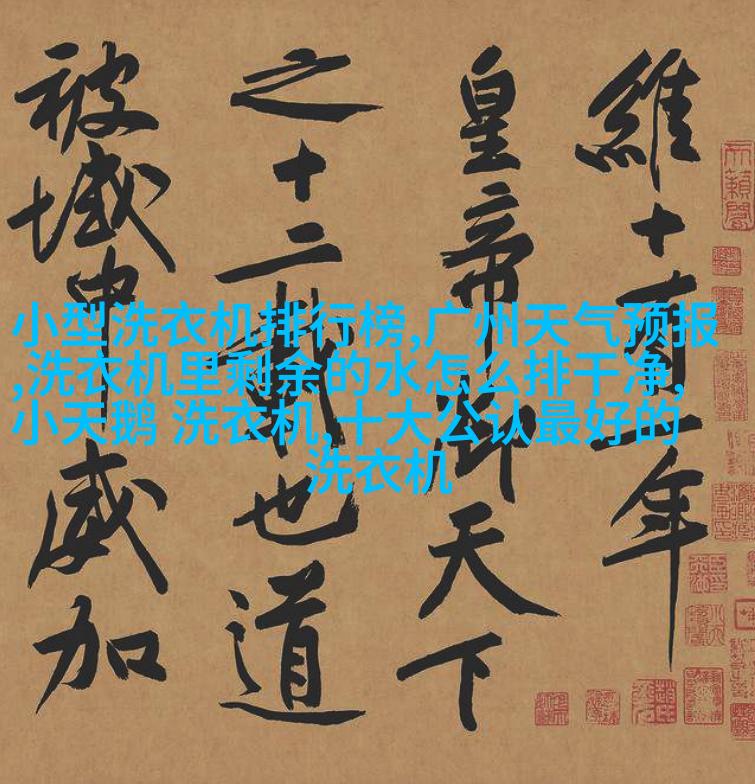 維十有一年
皇帝御天下
之十二載也道
被域中威加
小型洗衣机排行榜,广州天气预报
,洗衣机里剩余的水怎么排干净,
小天鹅 洗衣机,十大公认最好的
洗衣机